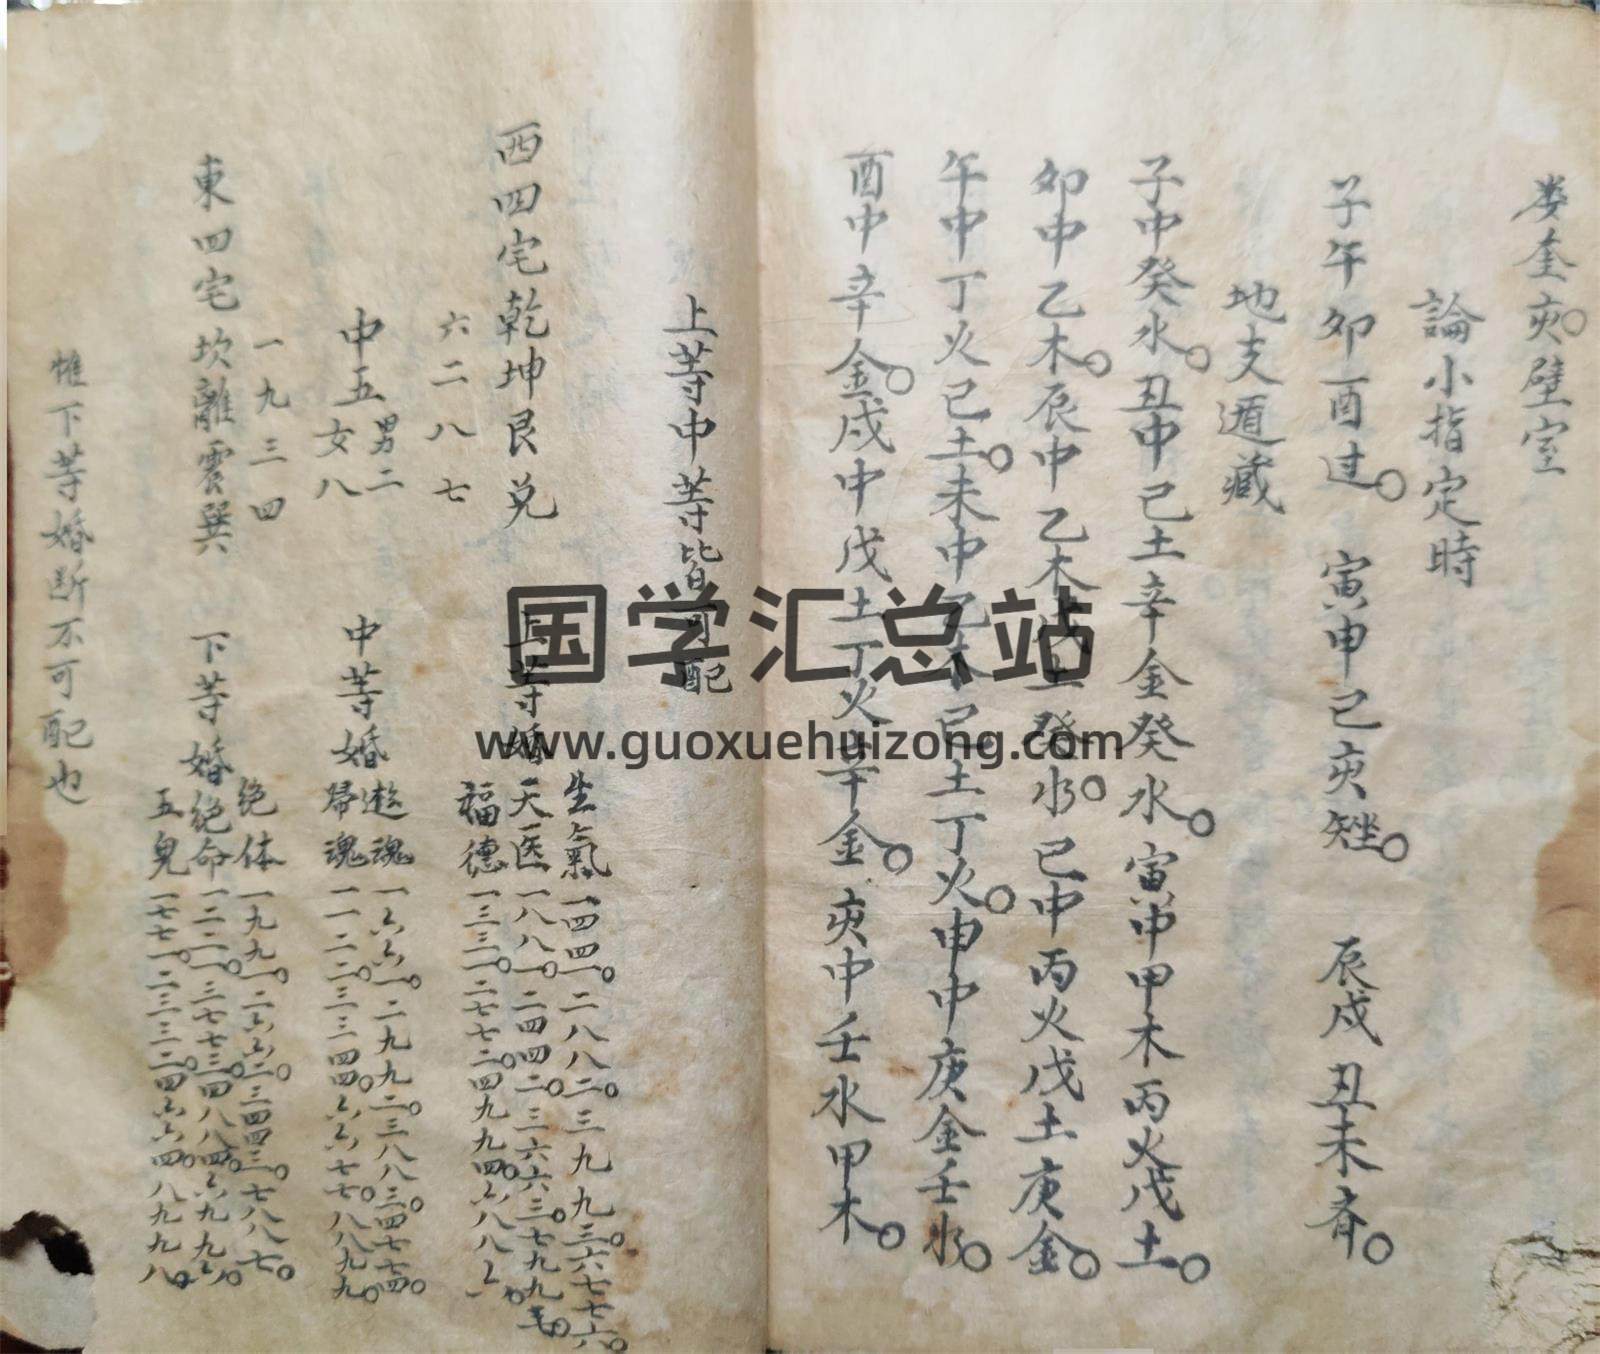 娄奎亥。壁室
論小指定時
子午卯酉过。寅申已亥矬。辰戌丑未斉。
地支遁藏
子中癸水。丑中已土辛金癸水。寅中甲木丙火戊土。
卯中乙木。辰中乙木戊土癸水。巳中丙火戊土庚金。
午中丁火已土。未中乙木已土丁火。申中庚金壬水。
酉中辛金。戌中戊土丁火辛金。亥中壬水甲木。
上等中等皆可配
西四宅乾坤艮兑
六二八七
上等婚
生氣一四四一。二八八二。三九九三。六七七六。
天医一八八一。二四四二。三六六三。七九九七。
福德一三三一。二七七二。四九九四。六八八六。
中五男二女八
中等婚
遊魂一六六一。二九九二。三八八三。四七七四。
歸魂一一二二。三三四四。六六七七。八八九九。
一九三四
東四宅坎離震巽
下等婚
绝体一九九一。二六六二。三四四三。七八八七。
绝命一二二一。三七七三。四八八四。六九九六。
五鬼一七七一。二三三二。四六六四。八九九八。
惟下等婚断不可配也
国学汇总站
www.guoxuehuizong.com